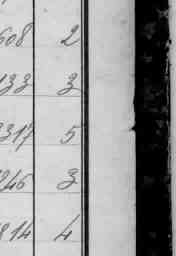 608 2
133 3
3317 5
246 3
814 4